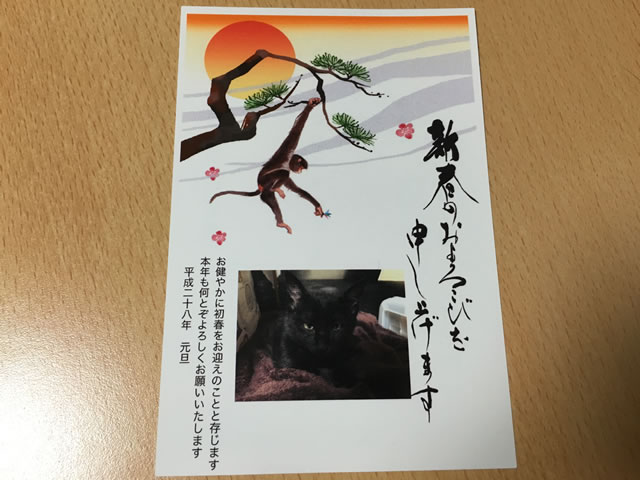 新春の
およろこびを
申し上げます
お健やかに初春をお迎えのことと存じます
本年も何とぞよろしくお願いいたします
平成二十八年　元旦